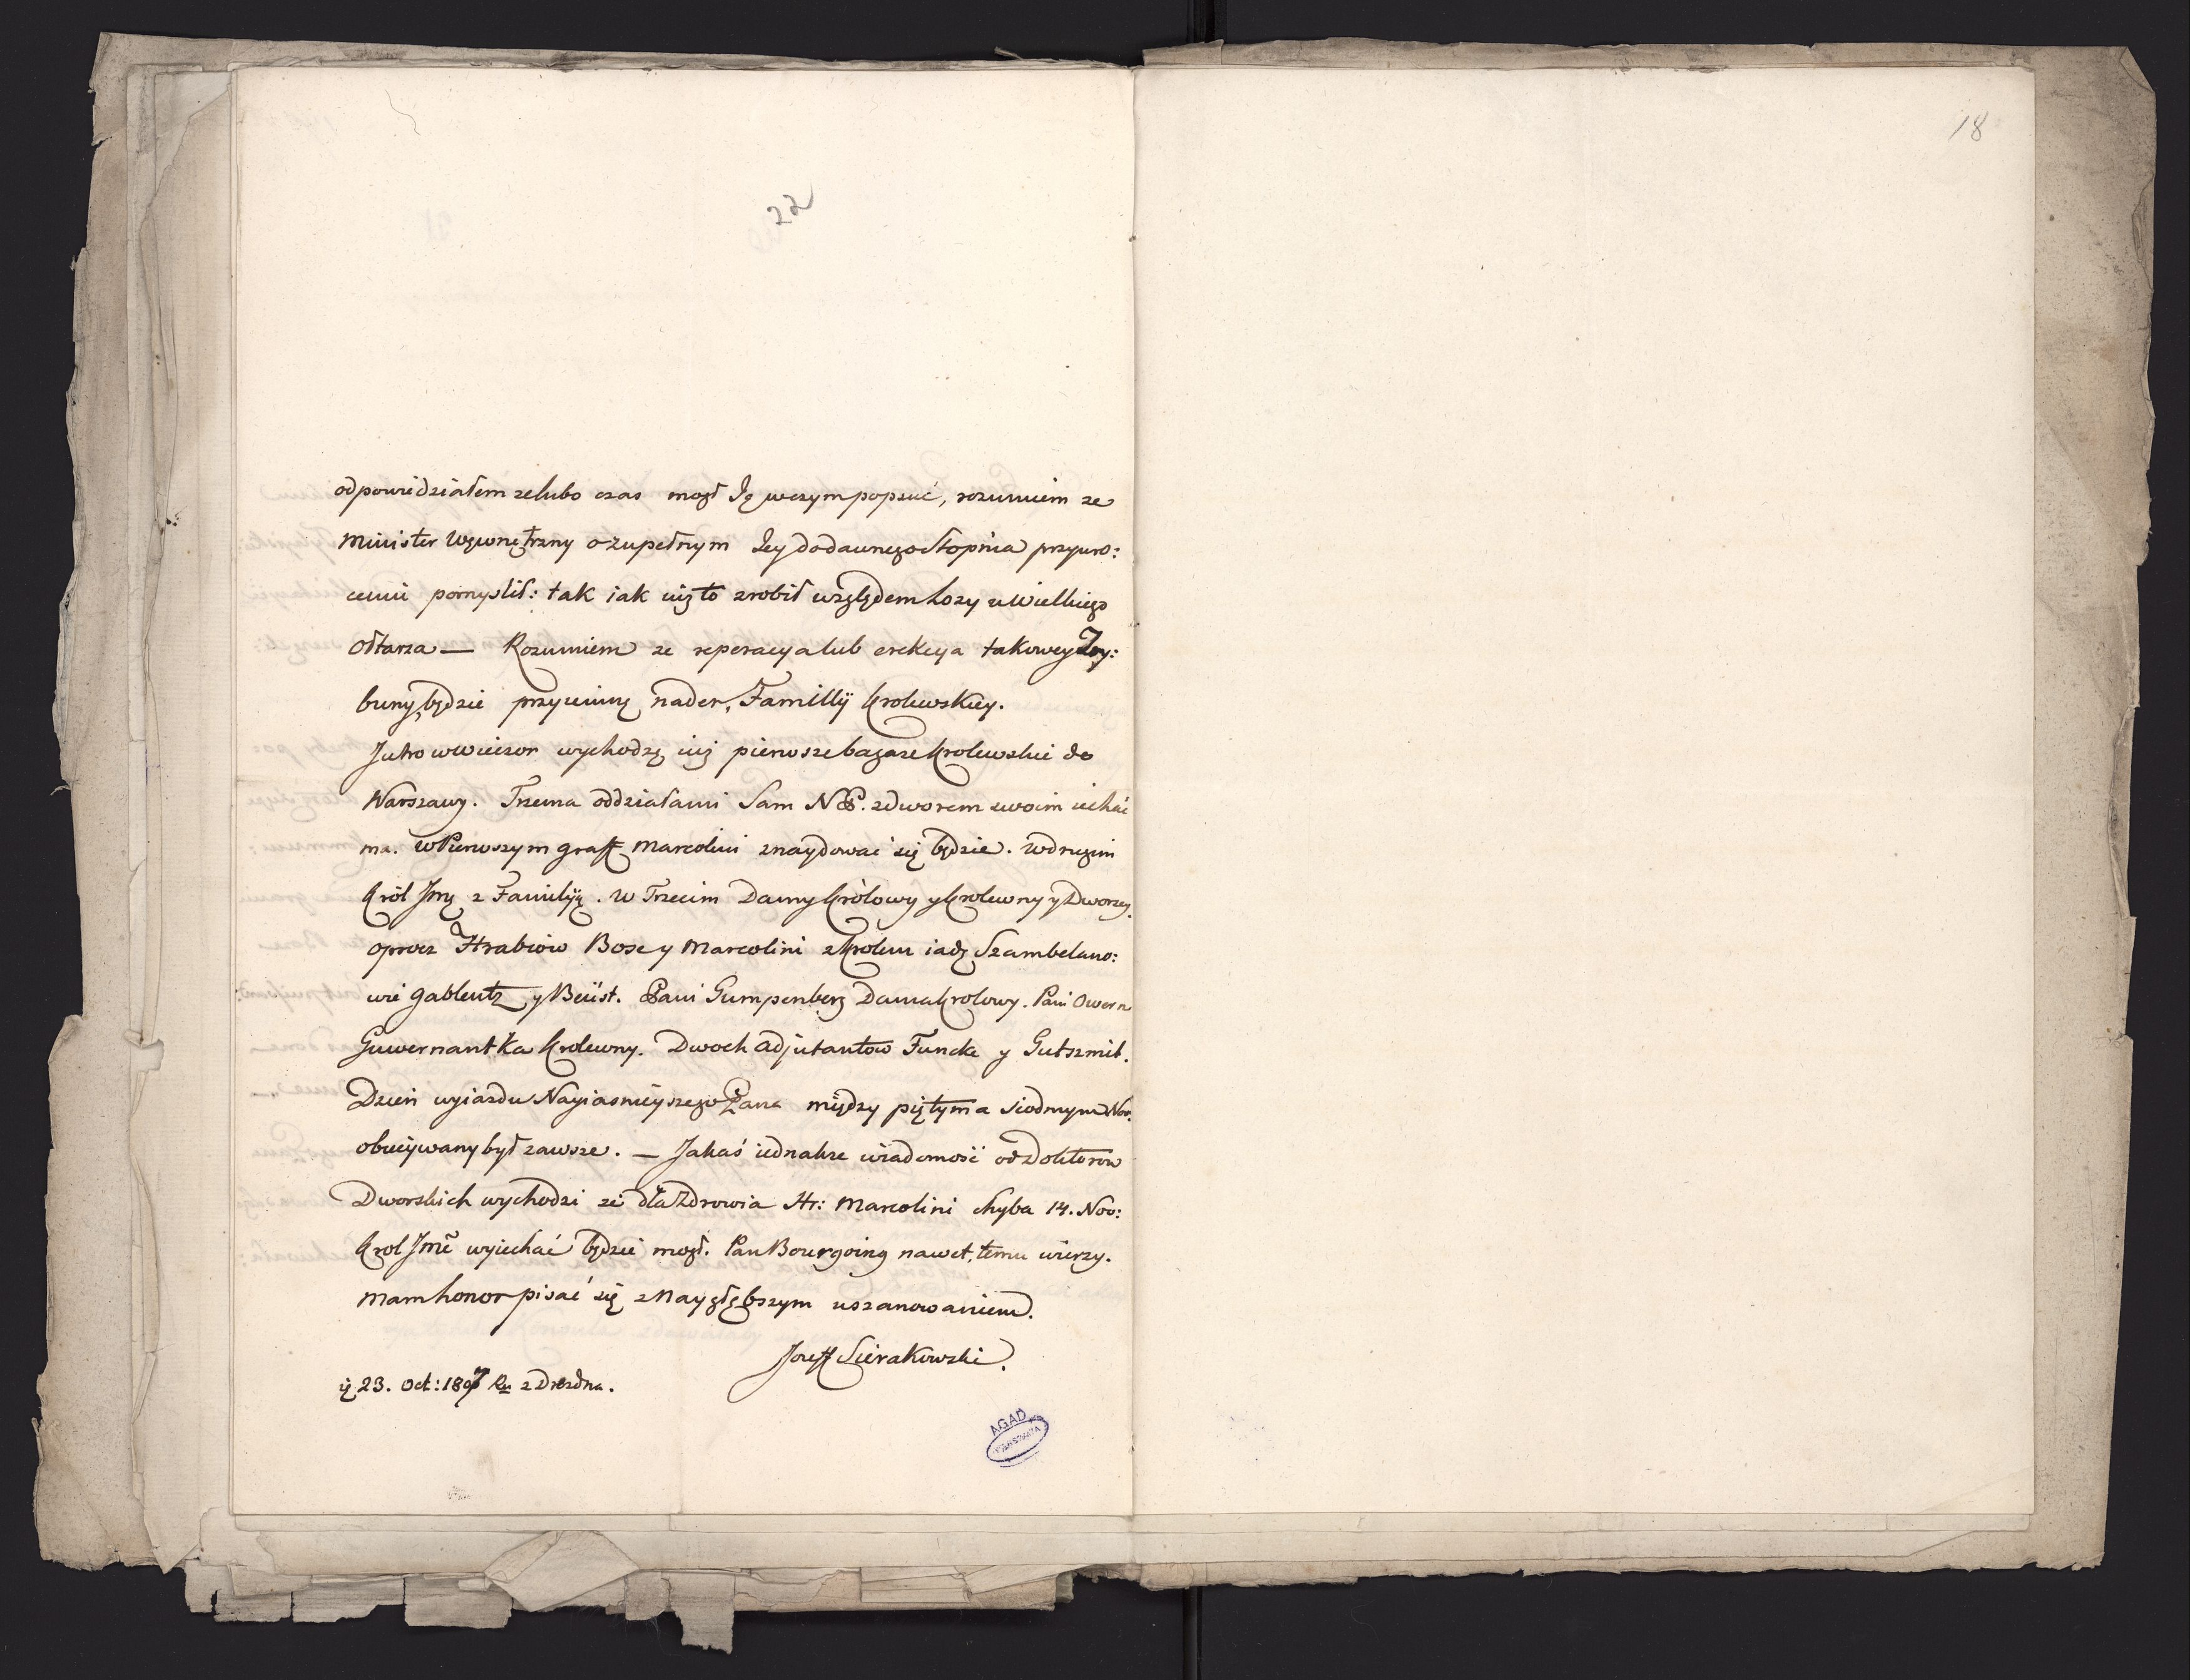 18
22
odpowiedziałem ze lubo czas mogł Ję wczym popsuć, rozumiem ze
Minister Wewnętrzny o zupełnym Jey do dawnego Stopnia przywro:
ceniu pomyslił: tak iak iuż to zrobił względem Lozy u Wielkiego
Ołtarza — Rozumiem ze reperacya lub erekcya takowey Try:
buny, będzie przyiemną nader, Familly Krolewskiey.
Jutro w wieczor wychodzą iuż pierwsze bagaze Krolewskie do
Warszawy. Trzema oddziałami Sam N P. z dworem swoim iechać
ma. w Pierwszym graff Marcolini znaydować się będzie. w drugim
Król Jmę z Familyą. w Trzecim Damy Królowy y Krolewny y Dworscy.
oprocz Hrabiów Bose y Marcolini z Krolem iadą Szambelano:
wie Gablentz y Beüst. Pani Gumpenberg Dama Krolowy. Pani Owern
Guwernantka Krolewny. Dwoch adjutantow Funcke y Gutszmit.
Dzień wyiazdu Nayiasnieyszego Pana między piątym a siodmym Nov.
obiecywany był zawsze. — Jakaś iednakze wiadomość od Doktorow
Dworskich wychodzi ze dla Zdrowia Hr: Marcolini chyba 14. Nov:
Krol Jmć wyiechać będzie mogł. Pan Bourgoing nawet, temu wierzy.
Mam honor pisać się z Naygłębszym uszanowaniem.
Joseff Sierakowski.
23. Oct: 1807 Ru z Drezdna.
AGAD
WARSZAWA